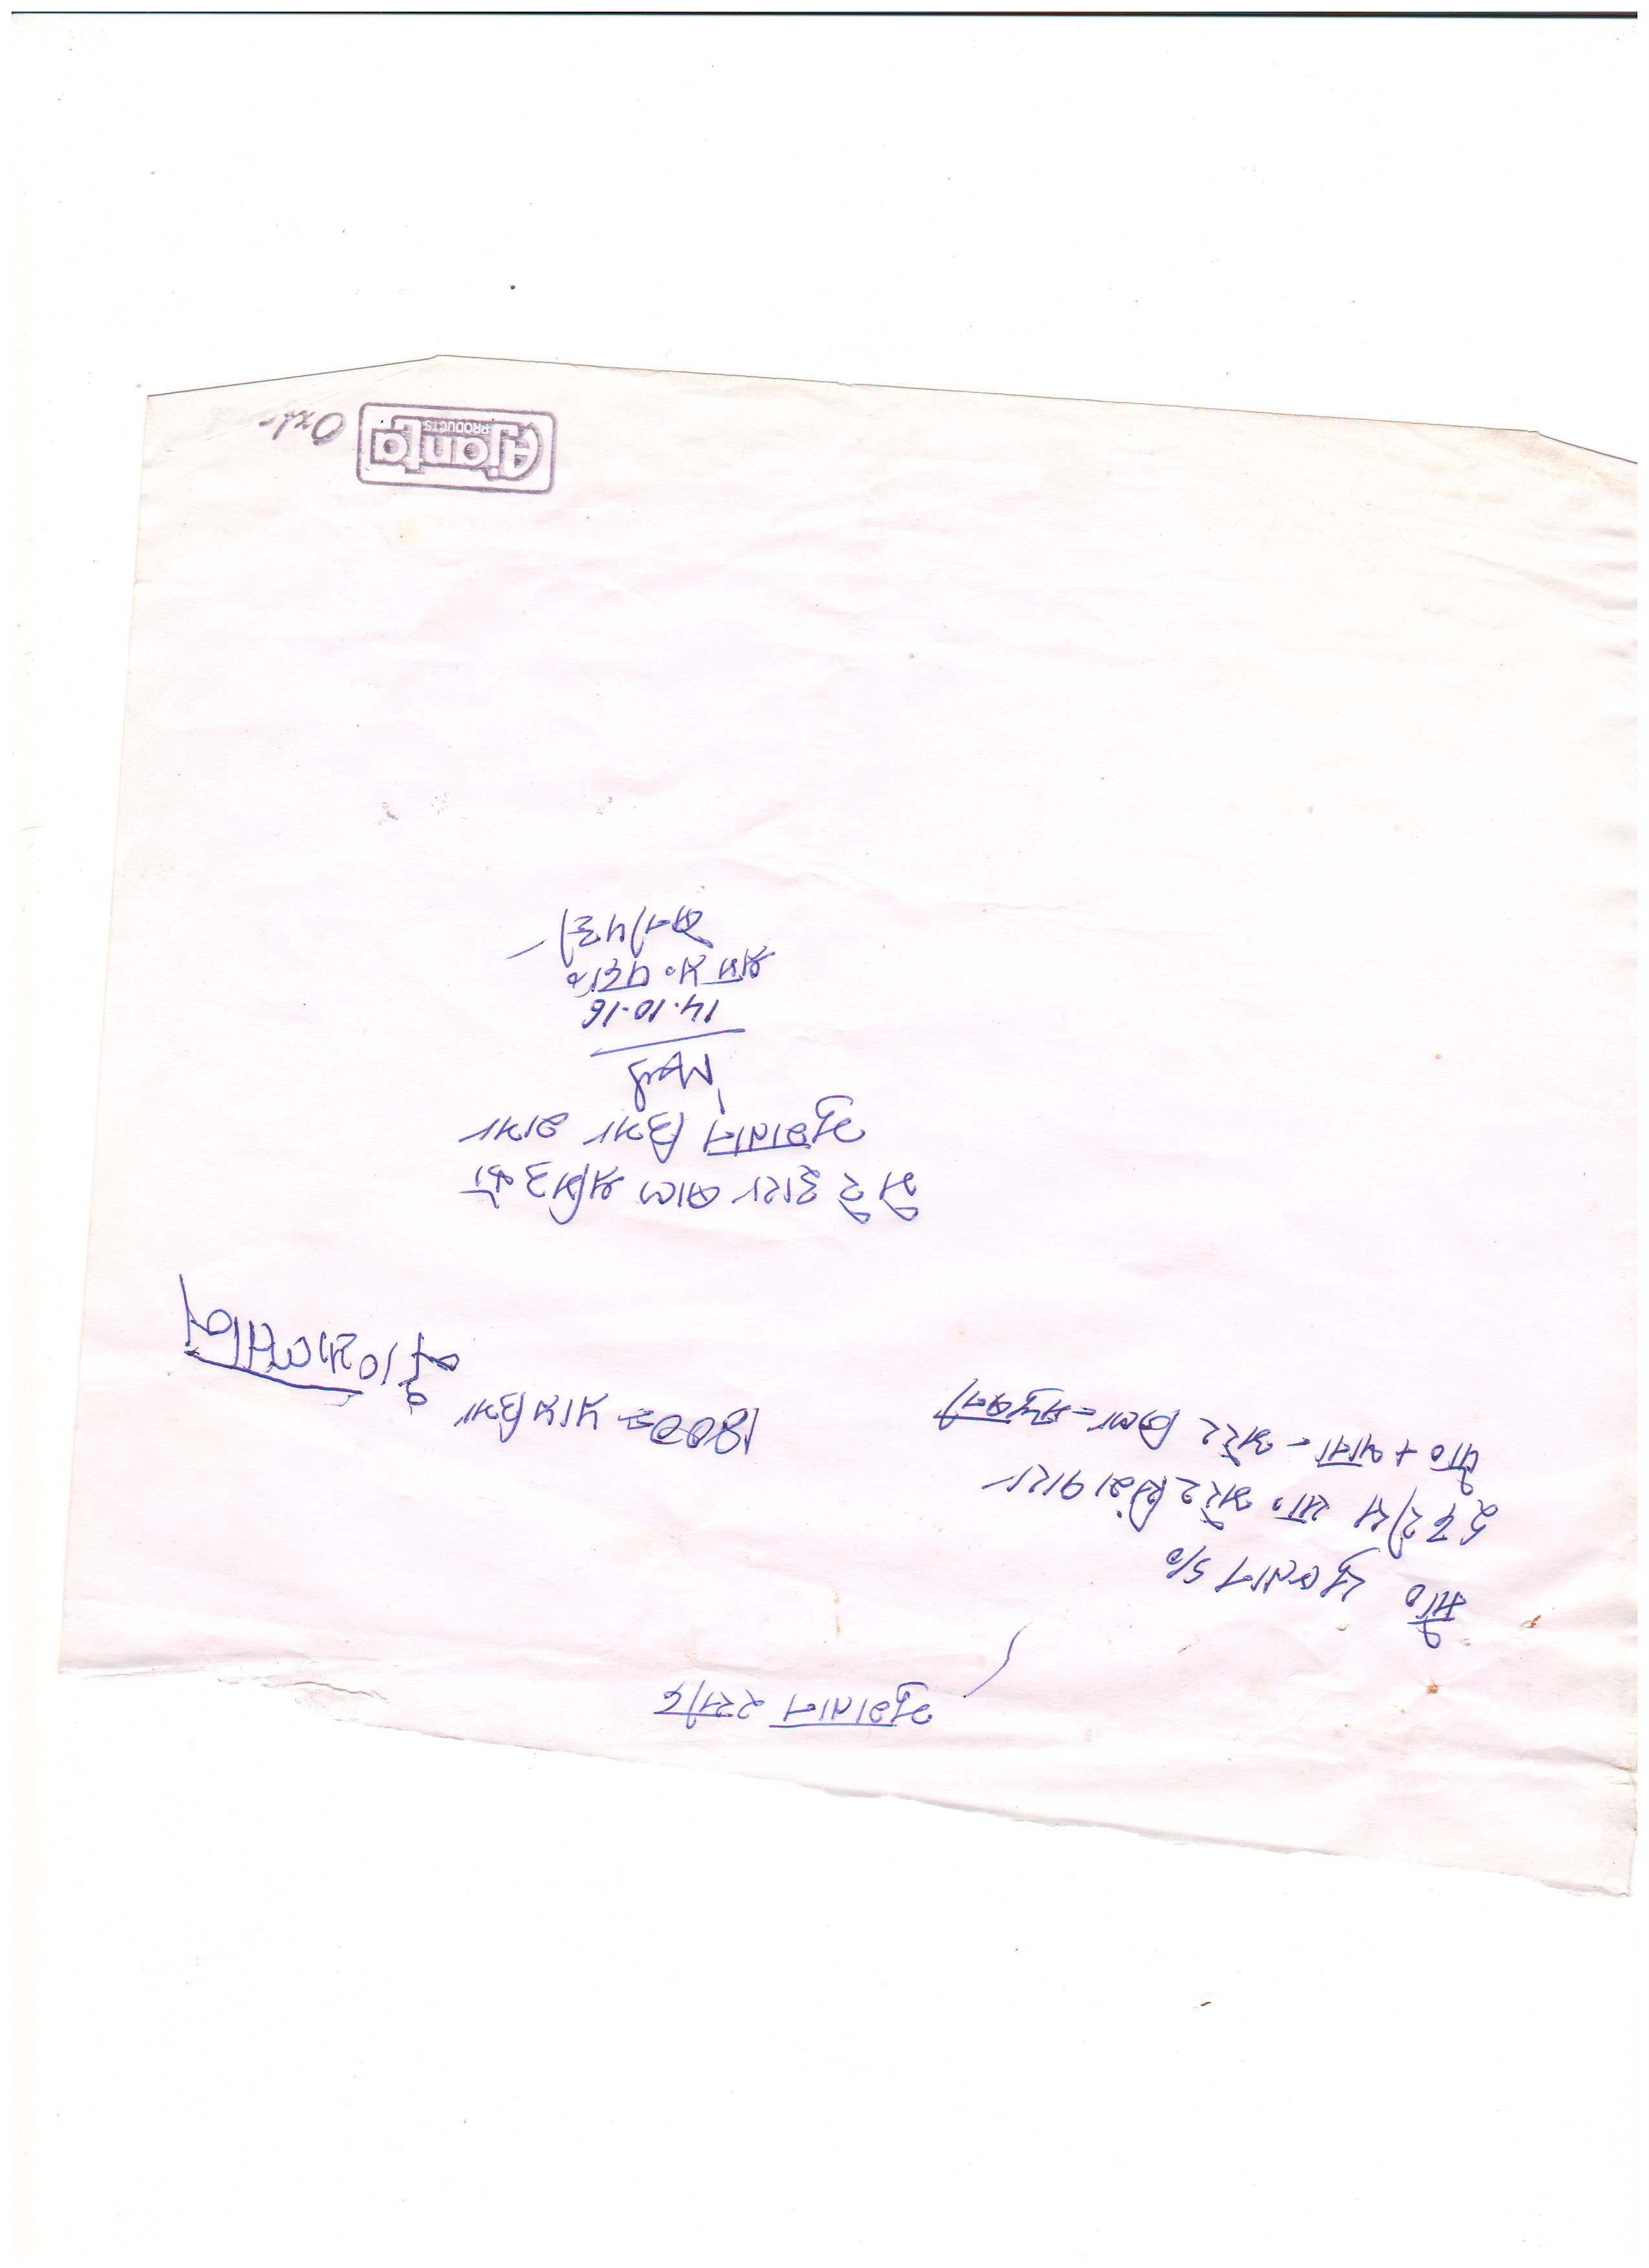 भुगतान रसीद
मो० सुल्तान S/o
इदरीस सा० अरेर सिंग्रा पारा
पो० + थाना - अरेर जिला - मधुबनी
1800 रु प्राप्त किया
मो० सुलतान
मेरे द्वारा बाल श्रमिक को
भुगतान किया गया
14.10.16
श्रम प्र० पदा०
बेनीपट्टी
Ajanta
PRODUCTS